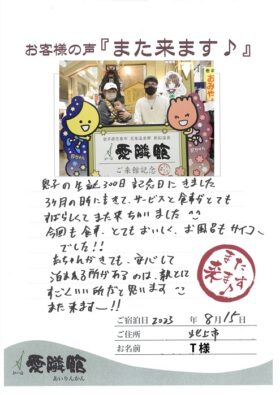 お客様の声『また来ます♪』
おみや
愛隣館
ご来館記念
息子の生誕300日記念日にきました
3ヶ月の時にもきて、サービスと食事がとても
すばらしくてまた来ちゃいました^^
今回も食事、とてもおいしく、お風呂もサイコー
でした!!
赤ちゃんがきても、安心して
泊まれる所があるのは、親としては
すごくいい所だと思います^^
また来まーす!!
また来ます♪
ご宿泊日 2023 年 8月 15日
ご住所 北上市
お名前 T様
愛隣館
あいりんかん